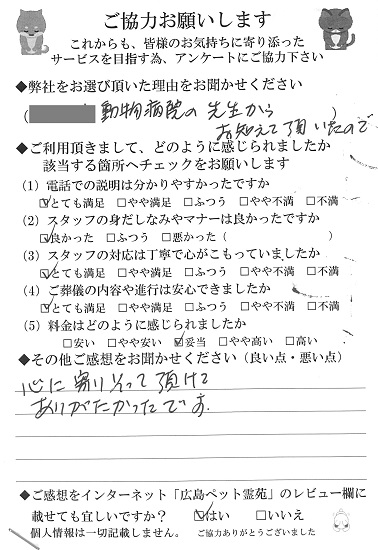 ご協力お願いします
これからも、皆様のお気持ちに寄り添った
サービスを目指す為、アンケートにご協力下さい
◆弊社をお選び頂いた理由をお聞かせください
(動物病院の先生から
お知えて頂いたので)
◆ご利用頂きまして、どのように感じられましたか
該当する箇所へチェックをお願いします
(1) 電話での説明は分かりやすかったですか
☑とても満足 □やや満足 □ふつう □やや不満 □不満
(2) スタッフの身だしなみやマナーは良かったですか
☑良かった □ふつう □悪かった ( )
(3) スタッフの対応は丁寧で心がこもっていましたか
☑とても満足 □やや満足 □ふつう □やや不満 □不満
(4) ご葬儀の内容や進行は安心できましたか
☑とても満足 □やや満足 □ふつう □やや不満 □不満
(5) 料金はどのように感じられましたか
□安い □やや安い ☑妥当 □やや高い □高い
◆その他ご感想をお聞かせください (良い点・悪い点)
心に寄りそって頂けて
ありがたかったです.
◆ご感想をインターネット「広島ペット霊苑」のレビュー欄に
載せても宜しいですか? ☑はい □いいえ
個人情報は一切記載しません。 ご協力ありがとうございました